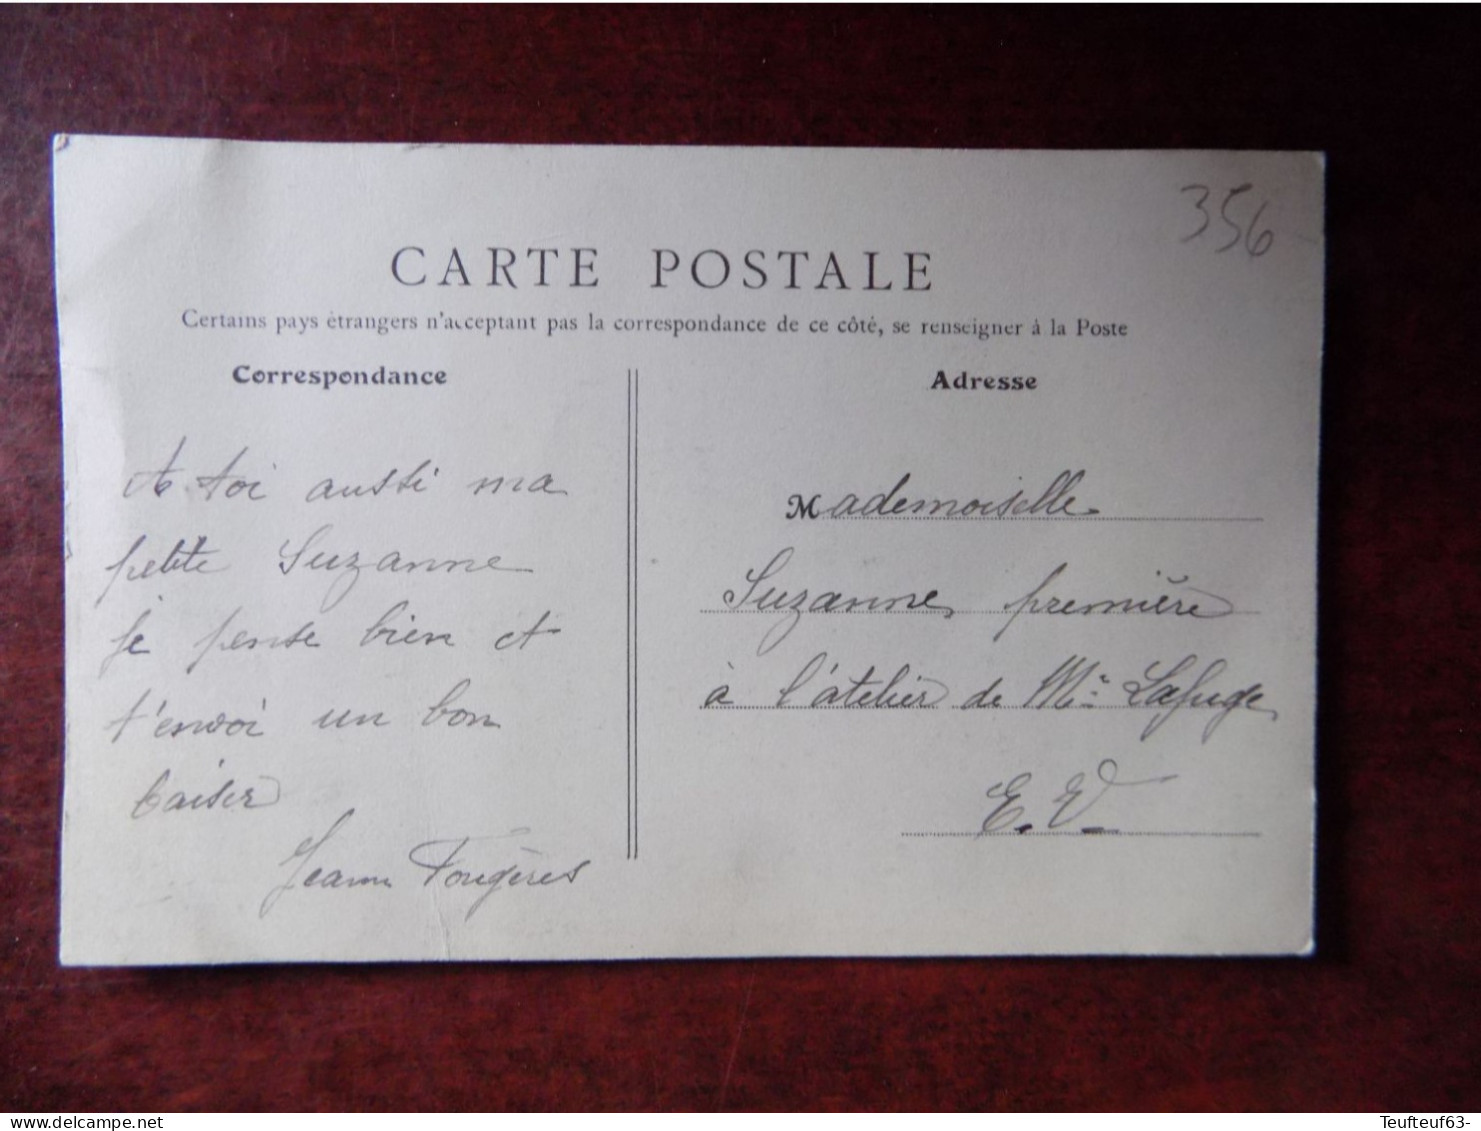 356
CARTE POSTALE
Certains pays étrangers n'acceptant pas la correspondance de ce côté, se renseigner à la Poste
Correspondance
A toi aussi ma
petite Suzanne
je pense bien et
t'envoi un bon
baiser
Jeanne Fougères
Adresse
Mademoiselle
Suzanne première
à l'atelier de Mr Lafuge
E.V.
delcampe.net
Teufteuf63-